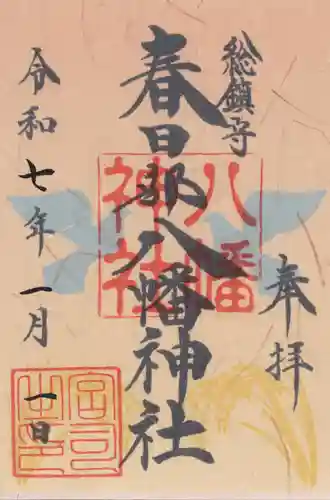 総鎮守
奉拝
春日部八幡神社
八幡
神社
令和七年一月一日
宮司
之印